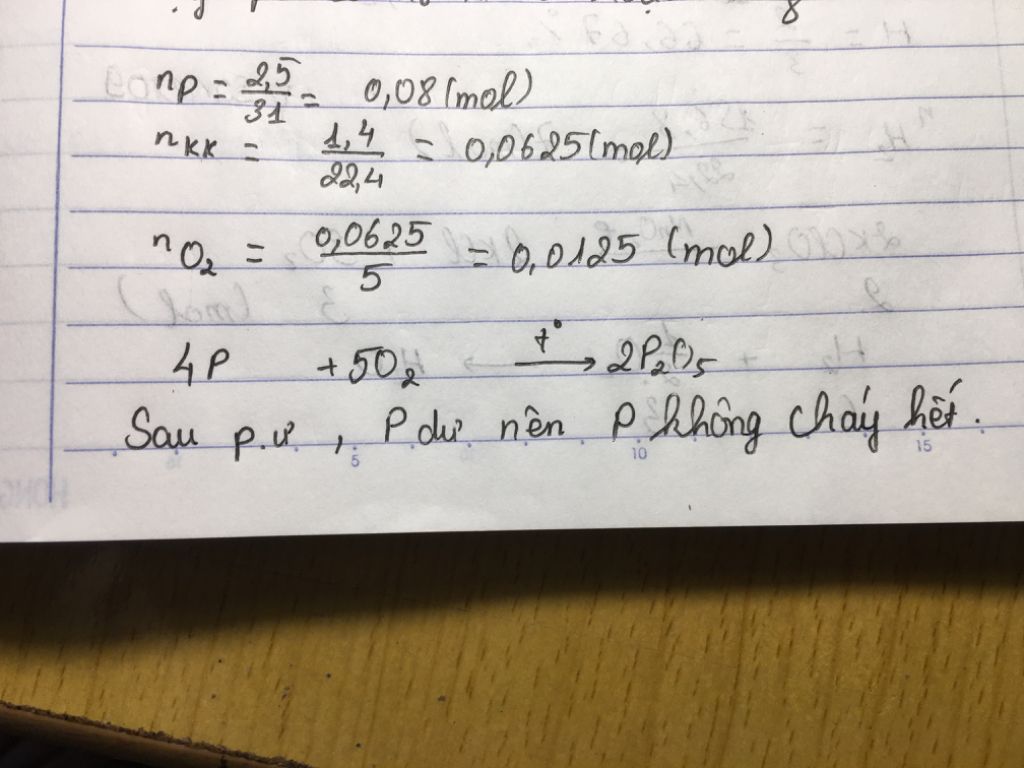 nP = 2,5/31 = 0,08 (mol)
nKK = 1,4/22,4 = 0,0625 (mol)
nO₂ = 0,0625/5 = 0,0125 (mol)
4P + 5O₂ —t°→ 2P₂O₅
Sau p.ư, P dư nên P không cháy hết.
5 10 15